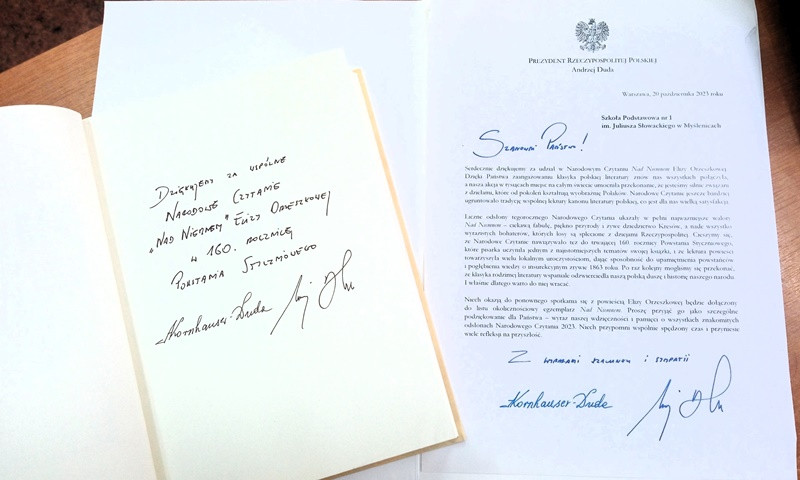 Dziękujemy za wspólne
Narodowe Czytanie
„Nad Niemnem" Elizy Orzeszkowej
w 160. rocznicę
Powstania Styczniowego
Kornhauser-Duda
PREZYDENT RZECZYPOSPOLITEJ POLSKIEJ
Andrzej Duda
Warszawa, 20 października 2023 roku
Szkoła Podstawowa nr 1
im. Juliusza Słowackiego w Myślenicach
Szanowni Państwo!
Serdecznie dziękujemy za udział w Narodowym Czytaniu Nad Niemnem Elizy Orzeszkowej.
Dzięki Państwa zaangażowaniu klasyka polskiej literatury znów nas wszystkich połączyła,
a nasza akcja w tysiącach miejsc na całym świecie umocniła przekonanie, że jesteśmy silnie związani
z dziełami, które od pokoleń kształtują wyobraźnię Polaków. Narodowe Czytanie jeszcze bardziej
ugruntowało tradycję wspólnej lektury kanonu literatury polskiej, co jest dla nas wielką satysfakcją.
Liczne odsłony tegorocznego Narodowego Czytania ukazały w pełni najważniejsze walory
Nad Niemnem – ciekawą fabułę, piękno przyrody i żywe dziedzictwo Kresów, a nade wszystko
wyrazistych bohaterów, których losy są splecione z dziejami Rzeczypospolitej. Cieszymy się,
że Narodowe Czytanie nawiązywało też do trwającej 160 rocznicy Powstania Styczniowego,
które pisarka uczyniła jednym z najistotniejszych tematów swojej książki, i że lektura powieści
towarzyszyła wielu lokalnym uroczystościom, dając sposobność do upamiętnienia powstańców
i pogłębienia wiedzy o insurekcyjnym zrywie 1863 roku. Po raz kolejny mogliśmy się przekonać,
że klasyka rodzimej literatury wspaniale odzwierciedla naszą polską duszę i historię naszego narodu
I właśnie dlatego warto do niej wracać.
Niech okazją do ponownego spotkania się z powieścią Elizy Orzeszkowej będzie dołączony
do listu okolicznościowy egzemplarz Nad Niemnem. Proszę przyjąć go jako szczególne
podziękowanie dla Państwa – wyraz naszej wdzięczności i pamięci o wszystkich znakomitych
odsłonach Narodowego Czytania 2023. Niech przypomni wspólnie spędzony czas i przyniesie
wiele refleksji na przyszłość.
Z wyrazami szacunku i sympatii
Kornhauser-Duda